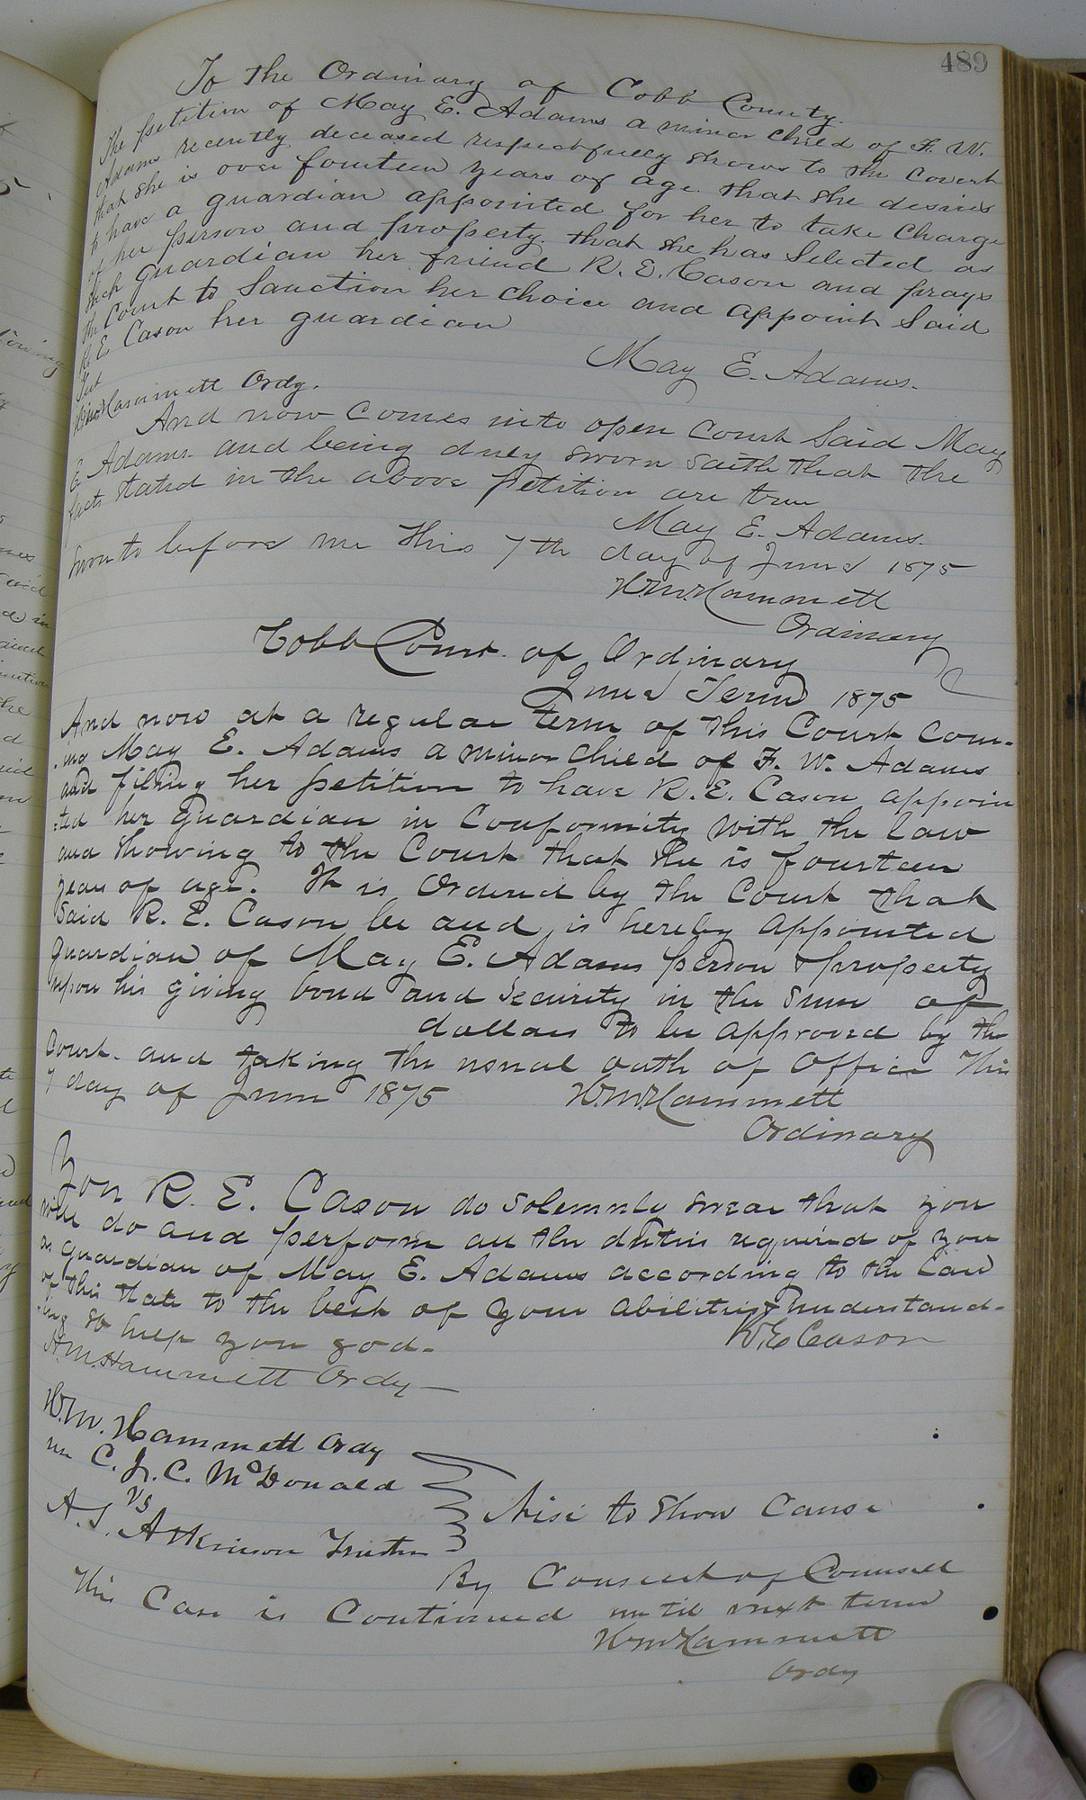 489
To the Ordinary of Cobb County.
The petition of May E. Adams a minor child of F. W.
Adams recently deceased respectfully shows to the Court
that she is over fourteen years of age that she desires
to have a guardian appointed for her to take charge
of her person and property. that she has Selected as
Such guardian her friend R. E. Cason and prays
the Court to Sanction her choice and appoint Said
R. E. Cason her guardian
May E. Adams.
Test
Wm Hammett Ordy.
And now Comes into open Court Said May
E Adams and being duly sworn saith that the
facts stated in the above petition are true
May E. Adams.
Sworn to before me this 7th day of June 1875
W.M. Hammett
Ordinary
Cobb Court of Ordinary
June Term 1875
And now at a regular term of this Court Com-
ing May E. Adams a minor Child of F. W. Adams
and filing her petition to have R. E. Cason appoin
ted her guardian in Conformity with the law
and showing to the Court that She is fourteen
years of age. It is Ordered by the Court that
Said R. E. Cason be and is hereby appointed
guardian of May E. Adams person & property
upon his giving bond and security in the sum of
dollars to be approved by the
Court. and taking the usual oath of office This
7 day of June 1875
W.M. Hammett
Ordinary
You R. E. Cason do solemnly swear that you
will do and perform all the duties required of you
as guardian of May E. Adams according to the law
of this State to the best of your abilities & understand-
ing So help you god.
R E Cason
W.M. Hammett Ordy
W.M. Hammett Ordy
C. J. C. McDonald
vs
A. S. Atkinson Trustee
Nisi to Show Cause
By Consent of Counsell
This Case is Continued until next term
W M Hammett
Ordy